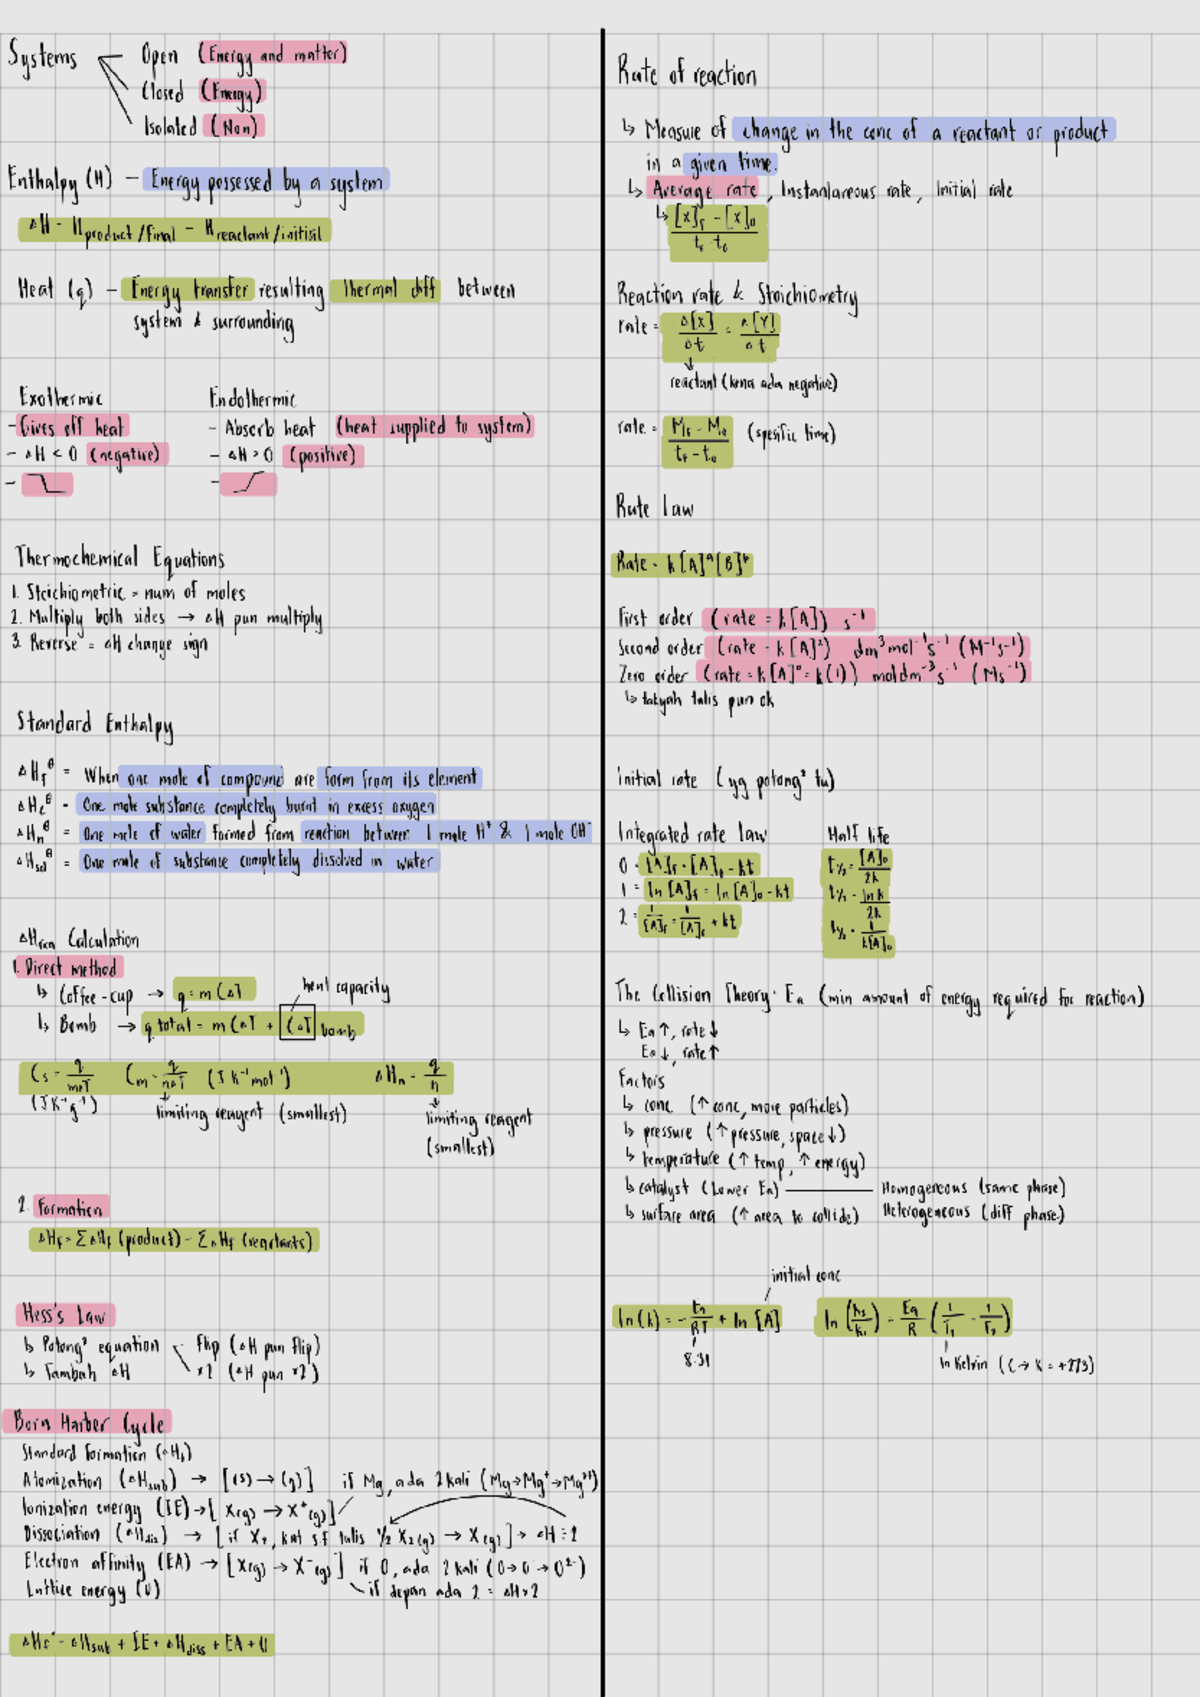 Systems
Open (Energy and matter)
Closed (Energy)
Isolated (Non)
Enthalpy (H) – Energy possessed by a system
ΔH = Hproduct/final – Hreactant/initial
Heat (q) – Energy transfer resulting thermal diff between
system & surrounding
Exothermic
- Gives off heat
- ΔH < 0 (negative)
-
Endothermic
- Absorb heat (heat supplied to system)
- ΔH > 0 (positive)
-
Thermochemical Equations
1. Stoichiometric = num of moles
2. Multiply both sides → ΔH pun multiply
3. Reverse = ΔH change sign
Standard Enthalpy
ΔHf° = When one mole of compound are form from its element
ΔHc° = One mole substance completely burnt in excess oxygen
ΔHn° = One mole of water formed from reaction between 1 mole H⁺ & 1 mole OH⁻
ΔHsol° = One mole of substance completely dissolved in water
ΔHrxn Calculation
1. Direct method
↳ Coffee-cup → q = mCΔT
heat capacity
↳ Bomb → q total = mCΔT + CΔT bomb
Cs = q/mΔT Cm = q/nΔT (J K⁻¹mol⁻¹) ΔHn = q/n
(JK⁻¹g⁻¹) limiting reagent (smallest) limiting reagent
(smallest)
2. Formation
ΔHf = ΣΔHf (product) – ΣΔHf (reactants)
Hess's Law
↳ Potong² equation flip (ΔH pun flip)
↳ Tambah ΔH ×2 (ΔH pun ×2)
Born Harber Cycle
Standard Formation (ΔHf)
Atomization (ΔHsub) → [(s) → (g)] if Mg, ada 2 kali (Mg→Mg⁺→Mg²⁺)
Ionization energy (IE) → [X(g) → X⁺(g)]
Dissociation (ΔHdis) → [if X₂, kat s.f tulis ½ X₂(g) → X(g)] → ΔH ÷ 2
Electron affinity (EA) → [X(g) → X⁻(g)] if O, ada 2 kali (O→O⁻→O²⁻)
Lattice energy (U) if depan ada 2 = ΔH×2
ΔHf° = ΔHsub + IE + ΔHdiss + EA + U
Rate of reaction
↳ Measure of change in the conc of a reactant or product
in a given time.
↳ Average rate, Instantaneous rate, Initial rate
↳ [X]f – [X]0 / tf – t0
Reaction rate & Stoichiometry
rate = Δ[X]/Δt = Δ[Y]/Δt
reactant (kena ada negative)
rate = Mf – M0 / tf – t0 (spesific time)
Rate law
Rate = k[A]ᵃ[B]ᵇ
First order (rate = k[A]) s⁻¹
Second order (rate = k[A]²) dm³mol⁻¹s⁻¹ (M⁻¹s⁻¹)
Zero order (rate = k[A]⁰ = k(1)) moldm⁻³s⁻¹ (Ms⁻¹)
↳ takyah tulis pun ok
Initial rate (yg potong² tu)
Integrated rate law Half life
0 = [A]f = [A]0 – kt t½ = [A]0/2k
1 = ln[A]f = ln[A]0 – kt t½ = ln k/2k
2 = 1/[A]f = 1/[A]0 + kt t½ = 1/k[A]0
The Collision Theory = Ea (min amount of energy required for reaction)
↳ Ea ↑, rate ↓
Ea ↓, rate ↑
Factors
↳ conc (↑ conc, more particles)
↳ pressure (↑ pressure, space ↓)
↳ temperature (↑ temp, ↑ energy)
↳ catalyst (Lower Ea) Homogeneous (same phase)
↳ surface area (↑ area to collide) Heterogeneous (diff phase)
initial conc
ln(k) = – Ea/RT + ln [A] ln (k2/k1) = Ea/R (1/T1 – 1/T2)
8.31 In Kelvin (C → K = +273)